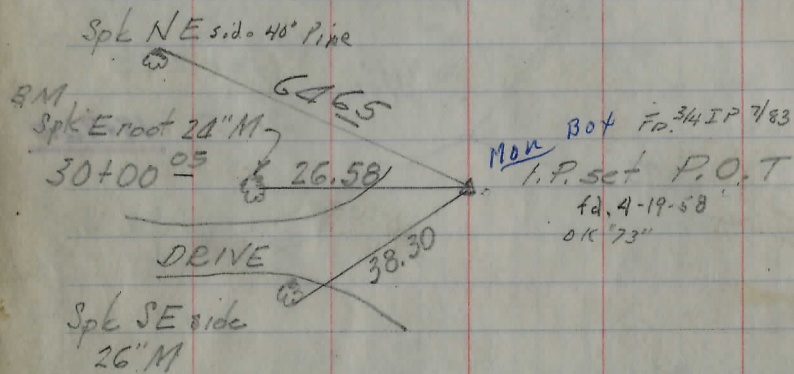 Spk NE side 40" Pine
64 65
BM
Spk E root 24" M
30+00 05
26.58
Mon Box Fd. 3/4 IP 7/83
I.P. set P.O.T
fd. 4-19-58
OK "73"
DRIVE
38.30
Spk SE side
26" M